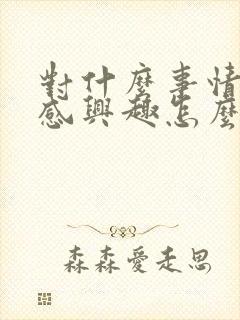 對什麼事情
感興趣怎麼
森森愛走思